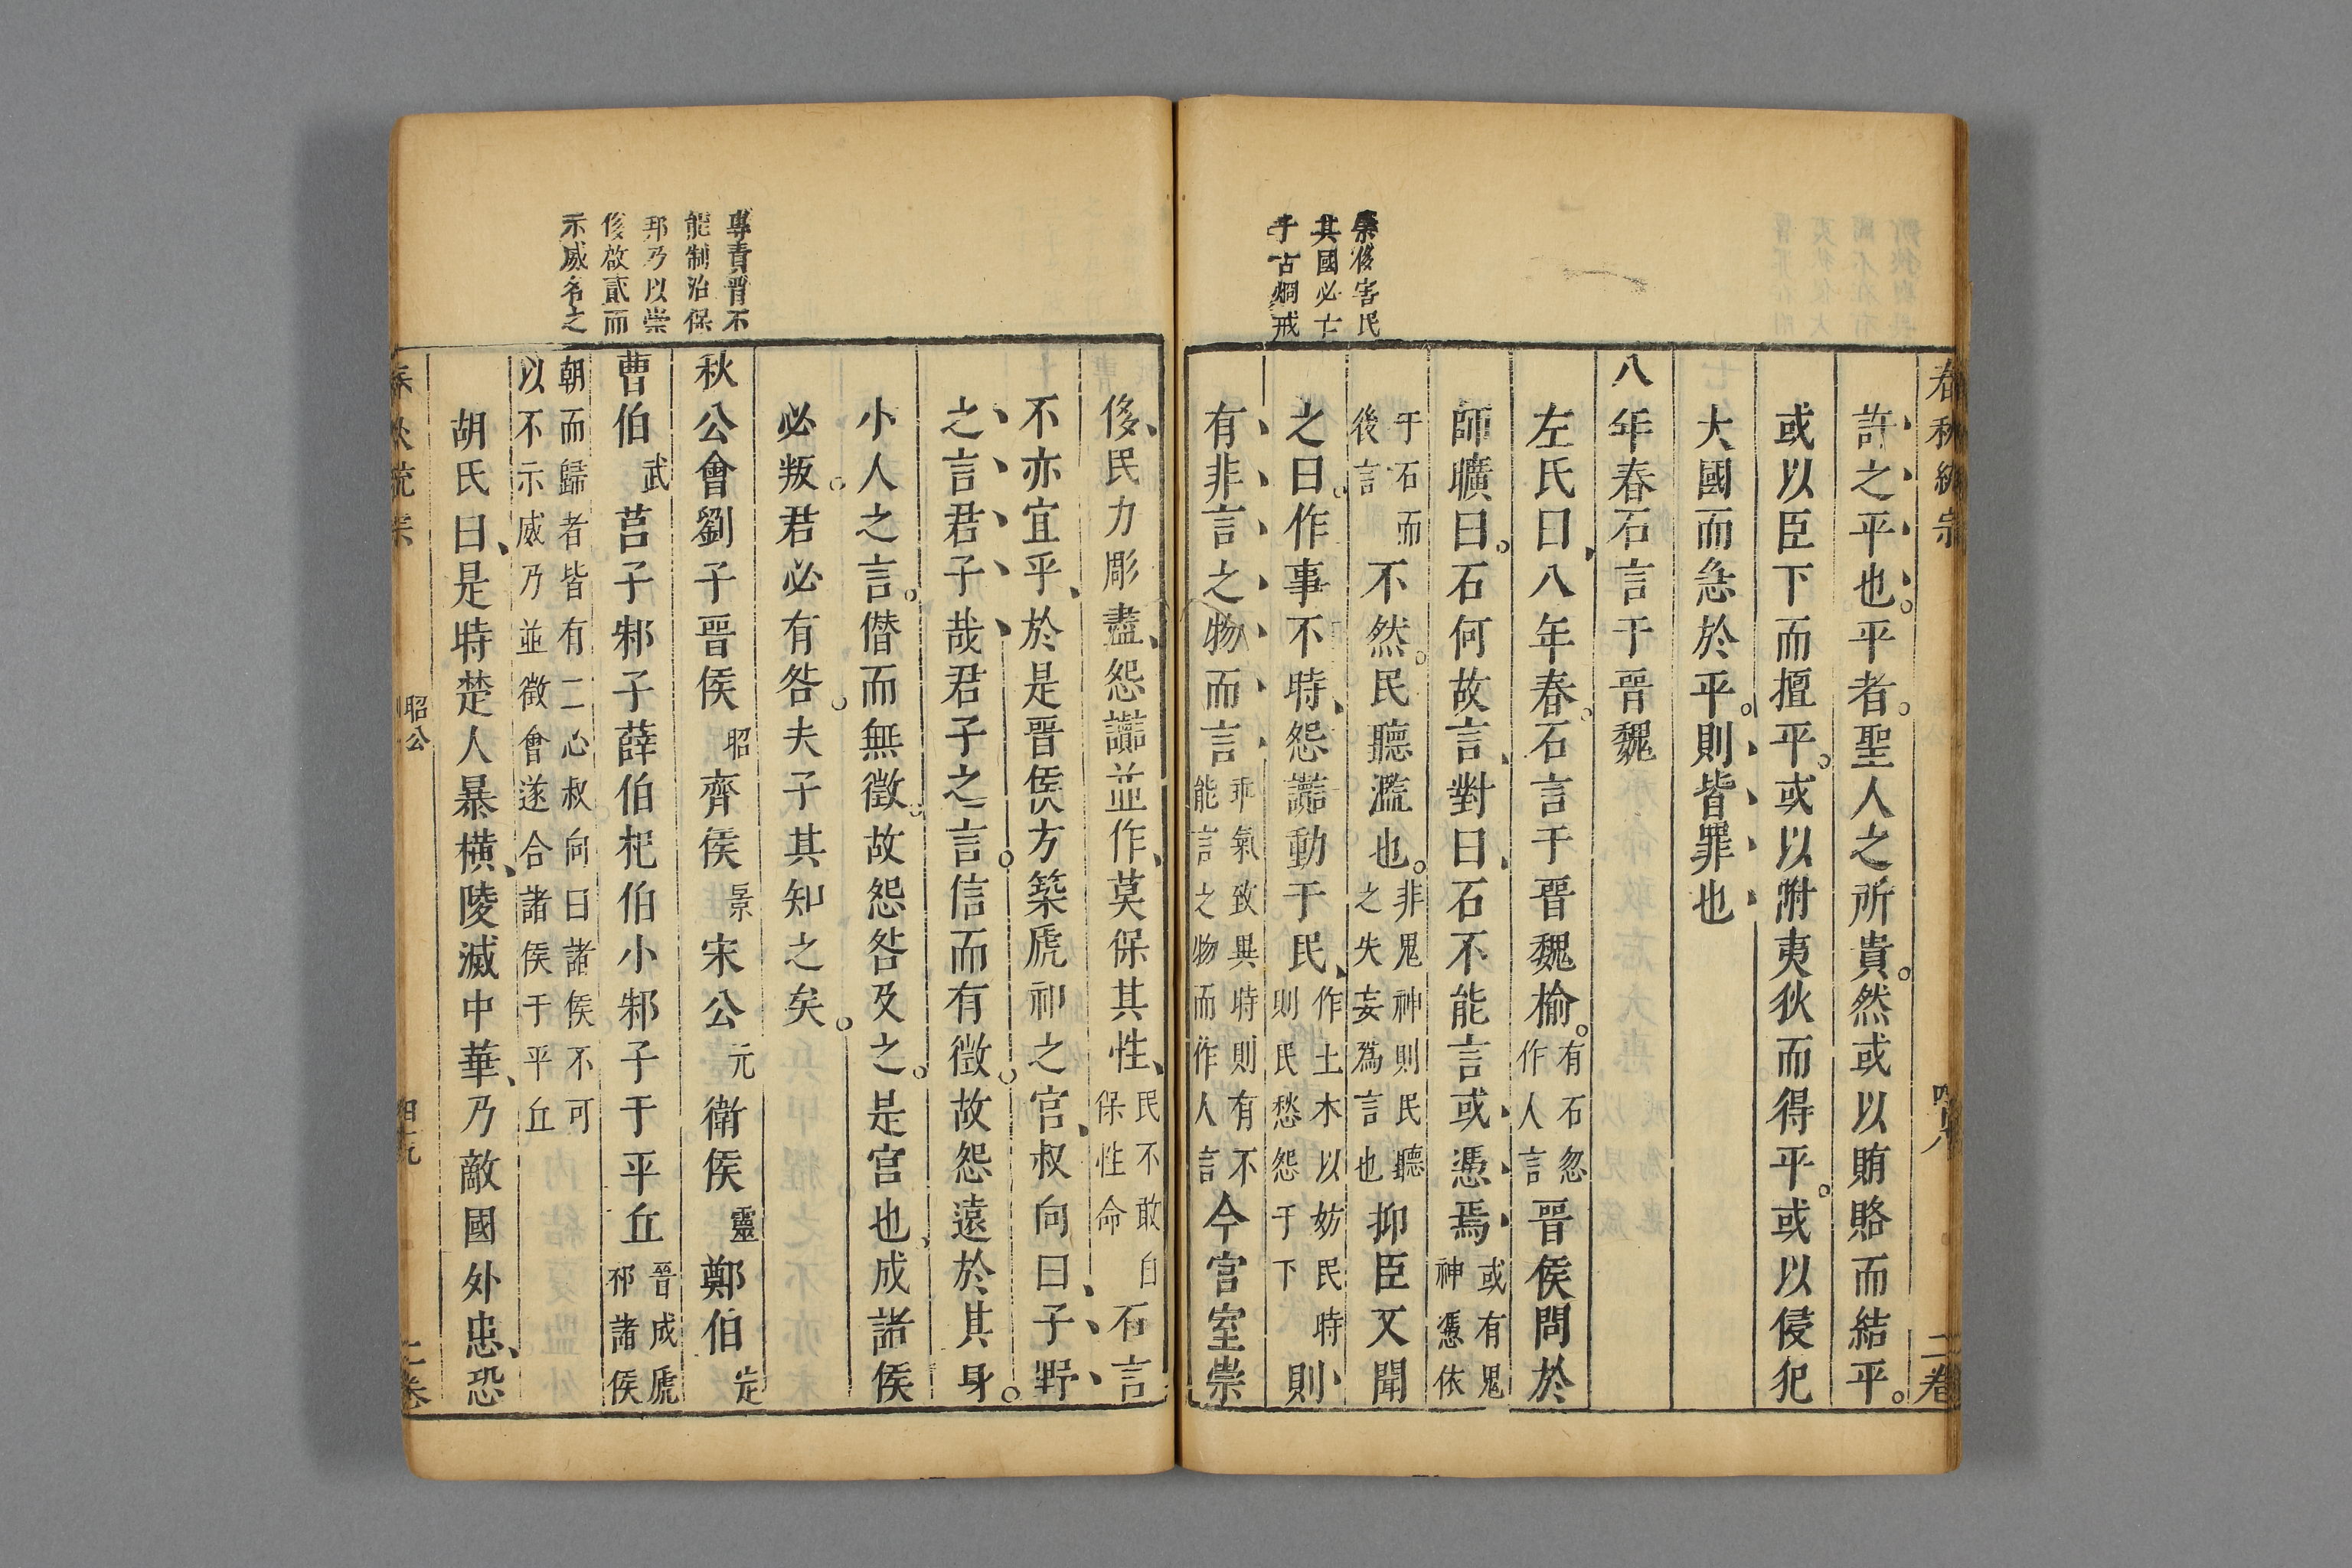 崇侈害民
其國必亡
千古烱戒
許之平也。平者。聖人之所貴。然或以賄賂而結平。
或以臣下而擅平。或以附夷狄而得平。或以侵犯
大國而急於平。則皆罪也
八年春石言于晋魏
左氏曰、八年春。石言于晋魏榆。有石忽作人言晋侯問於
師曠曰。石何故言、對曰、石不能言或憑焉或有鬼神憑依
于石而後言不然。民聽濫也。非鬼神則民聽之失妄爲言也抑臣又聞
之曰。作事不時、怨讟動于民、作土木以妨民時則民愁怨于下則
有非言之物而言乖氣致異時則有不能言之物而作人言今宮室崇
專責晋不
能制治保
邦乃以崇
侈啟貳而
示威名之
侈、民力彫盡、怨讟並作、莫保其性、民不敢自保性命石言
不亦宜乎、於是晋侯方築虒祁之宮、叔向曰、子野
之言君子哉君子之言。信而有徵。故怨遠於其身。
小人之言。僣而無徵。故怨咎及之。是宮也、成諸侯
必叛。君必有咎。夫子其知之矣。
秋公會劉子晋侯昭齊侯景宋公元衛侯靈鄭伯定
曹伯武莒子邾子薛伯杞伯小邾子于平丘晉成虒祁諸侯
朝而歸者皆有二心叔向曰諸侯不可以不示威乃並徵會遂合諸侯于平丘
胡氏曰、是時楚人暴橫、陵滅中華、乃敵國外患、恐
昭公